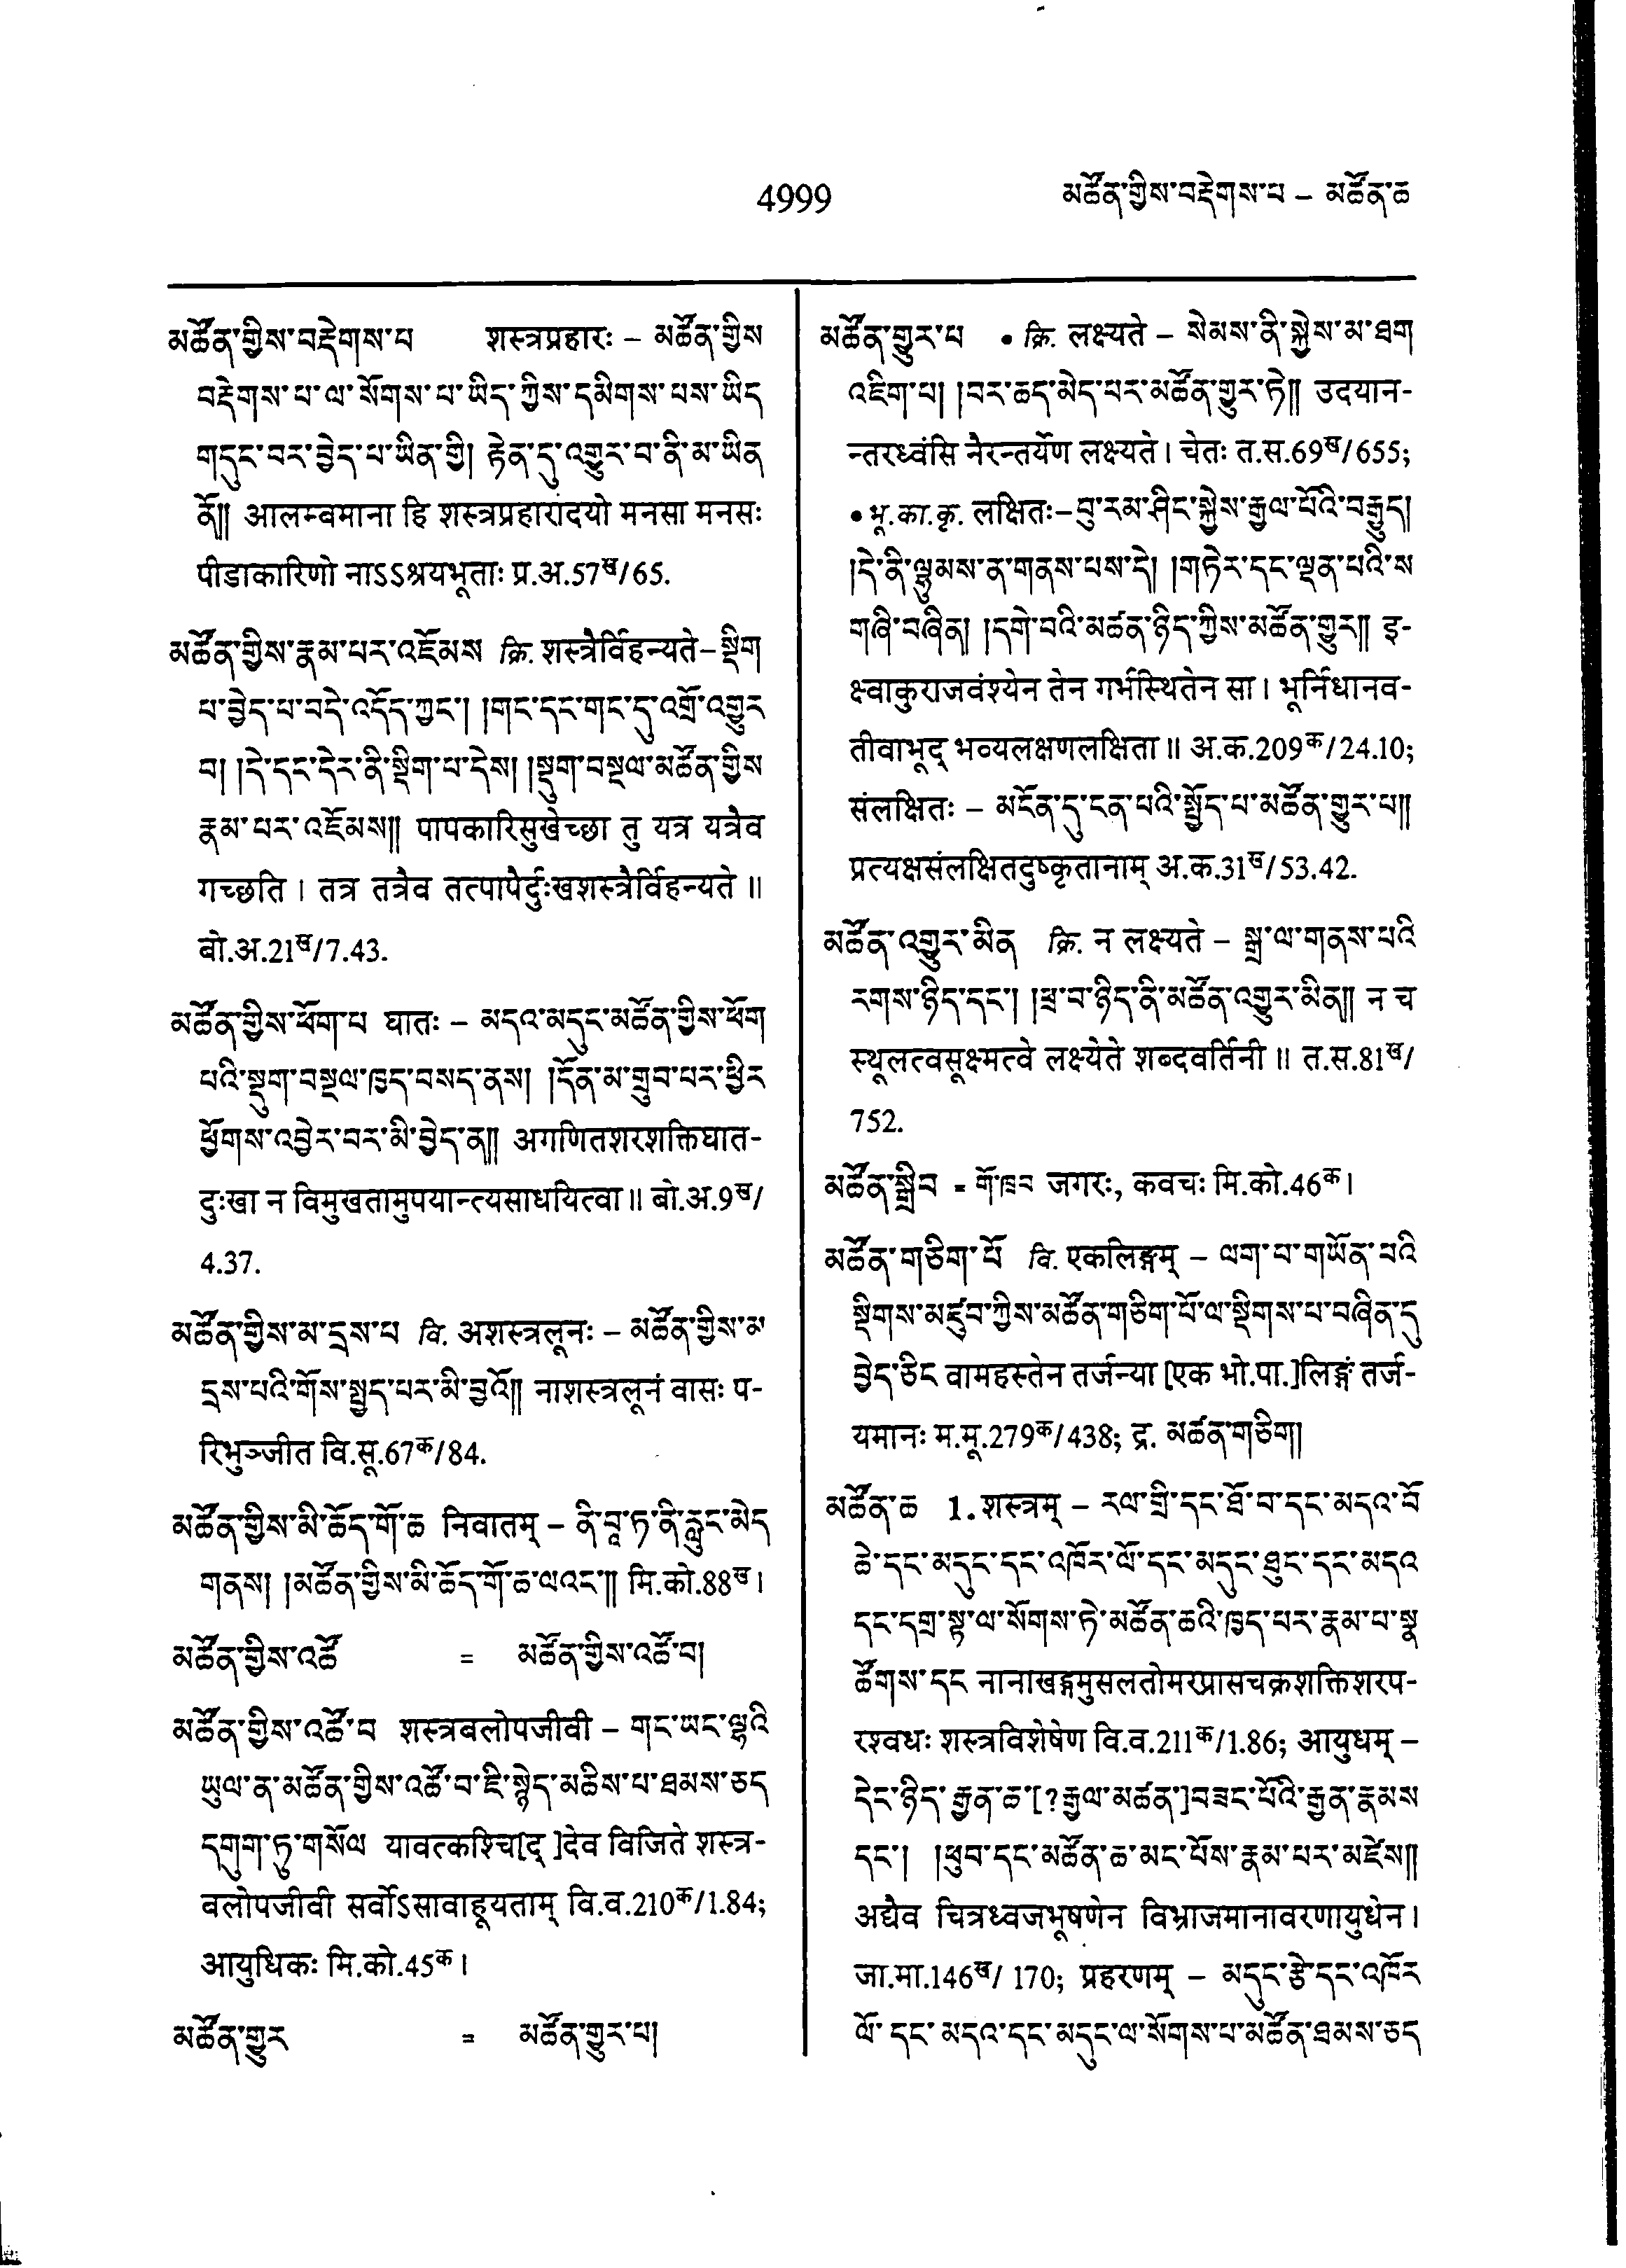 4999
མཚོན་གྱིས་བརྡེགས་པ – མཚོན་ཆ
མཚོན་གྱིས་བརྡེགས་པ शस्त्रप्रहारः – མཚོན་གྱིས
བརྡེགས་པ་ལ་སོགས་པ་ཡིད་ཀྱིས་དམིགས་པས་ཡིད
གདུང་བར་བྱེད་པ་ཡིན་གྱི། རྟེན་དུ་འགྱུར་བ་ནི་མ་ཡིན
ནོ༎ आलम्वमाना हि शस्त्रप्रहारादयो मनसा मनसः
पीडाकारिणो नाऽऽश्रयभूताः प्र.अ.57ख/65.
མཚོན་གྱིས་རྣམ་པར་འཇོམས क्रि. शस्त्रैर्विहन्यते–སྡིག
པ་བྱེད་པ་བདེ་འདོད་ཀྱང་། །གང་དང་གང་དུ་འགྲོ་འགྱུར
བ། །དེ་དང་དེར་ནི་སྡིག་པ་དེས། །སྡུག་བསྔལ་མཚོན་གྱིས
རྣམ་པར་འཇོམས༎ पापकारिसुखेच्छा तु यत्र यत्रैव
गच्छति । तत्र तत्रैव तत्पापैर्दुःखशस्त्रैर्विहन्यते ॥
बो.अ.21ख/7.43.
མཚོན་གྱིས་ཕོག་པ घातः – མདའ་མདུང་མཚོན་གྱིས་ཕོག
པའི་སྡུག་བསྔལ་ཁྱད་བསད་ནས། །དོན་མ་གྲུབ་པར་ཕྱིར
ཕྱོགས་འབྱེར་བར་མི་བྱེད་ན༎ अगणितशरशक्तिघात-
दुःखा न विमुखतामुपयान्त्यसाधयित्वा ॥ बो.अ.9ख/
4.37.
མཚོན་གྱིས་མ་དྲས་པ वि. अशस्त्रलूनः – མཚོན་གྱིས་མ
དྲས་པའི་གོས་སྤྱད་པར་མི་བྱའོ༎ नाशस्त्रलूनं वासः प-
रिभुञ्जीत वि.सू.67क/84.
མཚོན་གྱིས་མི་ཚོད་གོ་ཆ निवातम् – ནི་བཱ་ཏ་ནི་རླུང་མེད
གནས། །མཚོན་གྱིས་མི་ཚོད་གོ་ཆ་ལའང་༎ मि.को.88ख।
མཚོན་གྱིས་འཚོ = མཚོན་གྱིས་འཚོ་བ།
མཚོན་གྱིས་འཚོ་བ शस्त्रबलोपजीवी – གང་ཡང་ལྷའི
ཡུལ་ན་མཚོན་གྱིས་འཚོ་བ་ཇི་སྙེད་མཆིས་པ་ཐམས་ཅད
དགུག་ཏུ་གསོལ यावत्कश्चि[द् ]देव विजिते शस्त्र-
वलोपजीवी सर्वोऽसावाहूयताम् वि.व.210क/1.84;
आयुधिकः मि.को.45क।
མཚོན་གྱུར = མཚོན་གྱུར་པ།
མཚོན་གྱུར་པ • क्रि. लक्ष्यते – སེམས་ནི་སྐྱེས་མ་ཐག
འཇིག་པ། །བར་ཆད་མེད་པར་མཚོན་གྱུར་ཏེ༎ उदयान-
न्तरध्वंसि नैरन्तर्येण लक्ष्यते। चेतः त.स.69ख/655;
• भू.का.कृ. लक्षितः–བུ་རམ་ཤིང་སྐྱེས་རྒྱལ་པོའི་བརྒྱུད།
།དེ་ནི་ལྷུམས་ན་གནས་པས་དེ། །གཏེར་དང་ལྡན་པའི་ས
གཞི་བཞིན། །དགེ་བའི་མཚན་ཉིད་ཀྱིས་མཚོན་གྱུར༎ इ-
क्ष्वाकुराजवंश्येन तेन गर्भस्थितेन सा । भूर्निधानव-
तीवाभूद् भव्यलक्षणलक्षिता ॥ अ.क.209क/24.10;
संलक्षितः – མངོན་དུ་ངན་པའི་སྤྱོད་པ་མཚོན་གྱུར་པ༎
प्रत्यक्षसंलक्षितदुष्कृतानाम् अ.क.31ख/53.42.
མཚོན་འགྱུར་མིན क्रि. न लक्ष्यते – སྒྲ་ལ་གནས་པའི
རགས་ཉིད་དང་། །ཕྲ་བ་ཉིད་ནི་མཚོན་འགྱུར་མིན༎ न च
स्थूलत्वसूक्ष्मत्वे लक्ष्येते शब्दवर्तिनी ॥ त.स.81ख/
752.
མཚོན་སྒྲིབ = གོ་ཁྲབ जगरः, कवचः मि.को.46क।
མཚོན་གཅིག་པོ वि. एकलिङ्गम् – ལག་པ་གཡོན་པའི
སྡིགས་མཛུབ་ཀྱིས་མཚོན་གཅིག་པོ་ལ་སྡིགས་པ་བཞིན་དུ
བྱེད་ཅིང वामहस्तेन तर्जन्या [एक भो.पा.]लिङ्गं तर्ज-
यमानः म.मू.279क/438; द्र. མཚན་གཅིག།
མཚོན་ཆ 1. शस्त्रम् – རལ་གྲི་དང་ཐོ་བ་དང་མདའ་བོ
ཆེ་དང་མདུང་དང་འཁོར་ལོ་དང་མདུང་ཐུང་དང་མདའ
དང་དགྲ་སྟ་ལ་སོགས་ཏེ་མཚོན་ཆའི་ཁྱད་པར་རྣམ་པ་སྣ
ཚོགས་དང नानाखङ्गमुसलतोमरप्रासचक्रशक्तिशरप-
रश्वधः शस्त्रविशेषेण वि.व.211क/1.86; आयुधम् –
དེང་ཉིད་རྒྱན་ཆ་[?རྒྱལ་མཚན་]བཟང་པོའི་རྒྱན་རྣམས
དང་། །ཕུབ་དང་མཚོན་ཆ་མང་པོས་རྣམ་པར་མཛེས༎
अद्यैव चित्रध्वजभूषणेन विभ्राजमानावरणायुधेन ।
जा.मा.146ख/ 170; प्रहरणम् – མདུང་རྩེ་དང་འཁོར
ལོ་ དང་ མདའ་དང་མདུང་ལ་སོགས་པ་མཚོན་ཐམས་ཅད